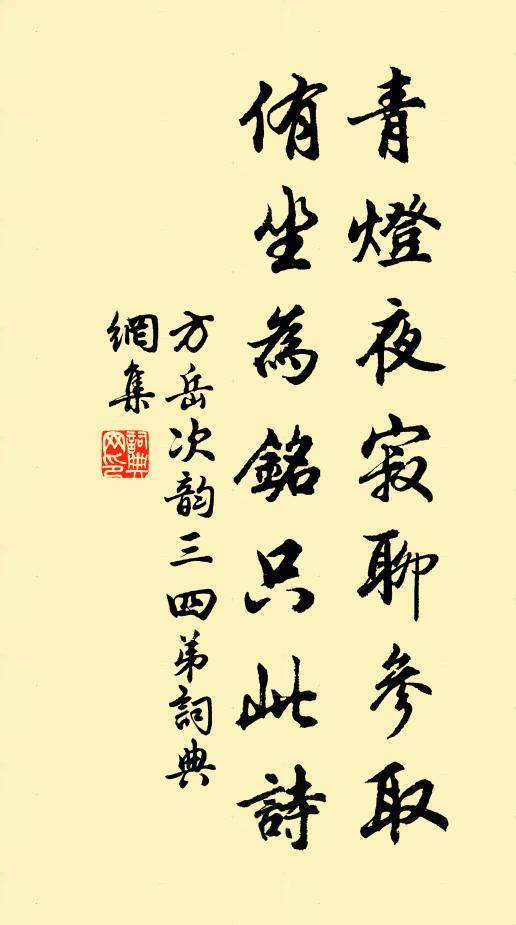 青燈夜寂聊參取
侑坐為銘只此詩
方岳次韵三四弟詞典
網集
詞典網印